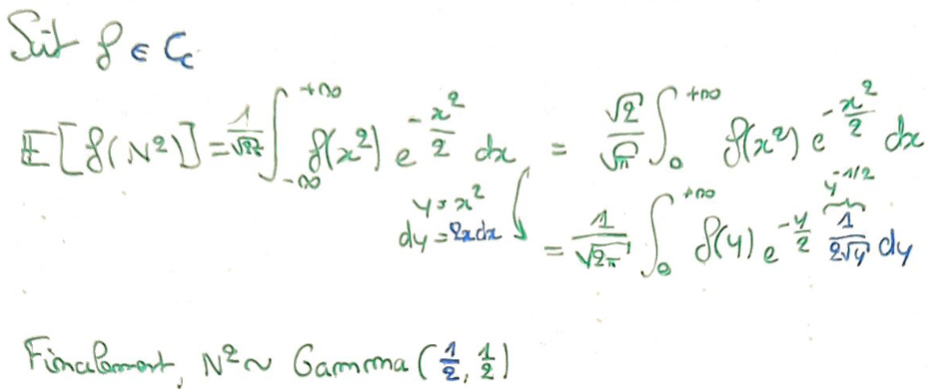 Soit f ∈ C_c
E[f(N²)] = 1/√2π ∫_{-∞}^{+∞} f(x²) e^{-x²/2} dx = √2/√π ∫_0^{+∞} f(x²) e^{-x²/2} dx
y = x²
dy = 2x dx
= 1/√2π ∫_0^{+∞} f(y) e^{-y/2} 1/(2√y) dy
y^{-1/2}
Finalement, N² ~ Gamma(1/2, 1/2)